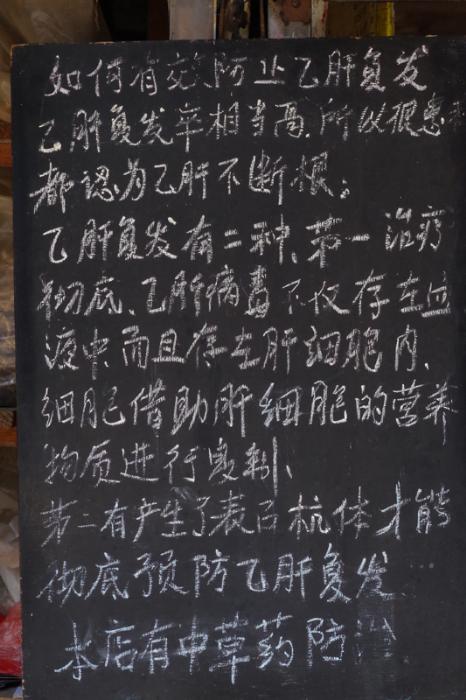 如何有效防止乙肝复发
乙肝复发率相当高.所以很患者
都認为乙肝不断根。
乙肝复发有二种、苐一治疗
彻底、乙肝病毒不仅存在血
液中、而且存在肝细胞内、
细胞借助肝细胞的营养
物质进行复制、
苐二有产生了表面抗体才能
彻底预防乙肝复发
本店有中草药防治